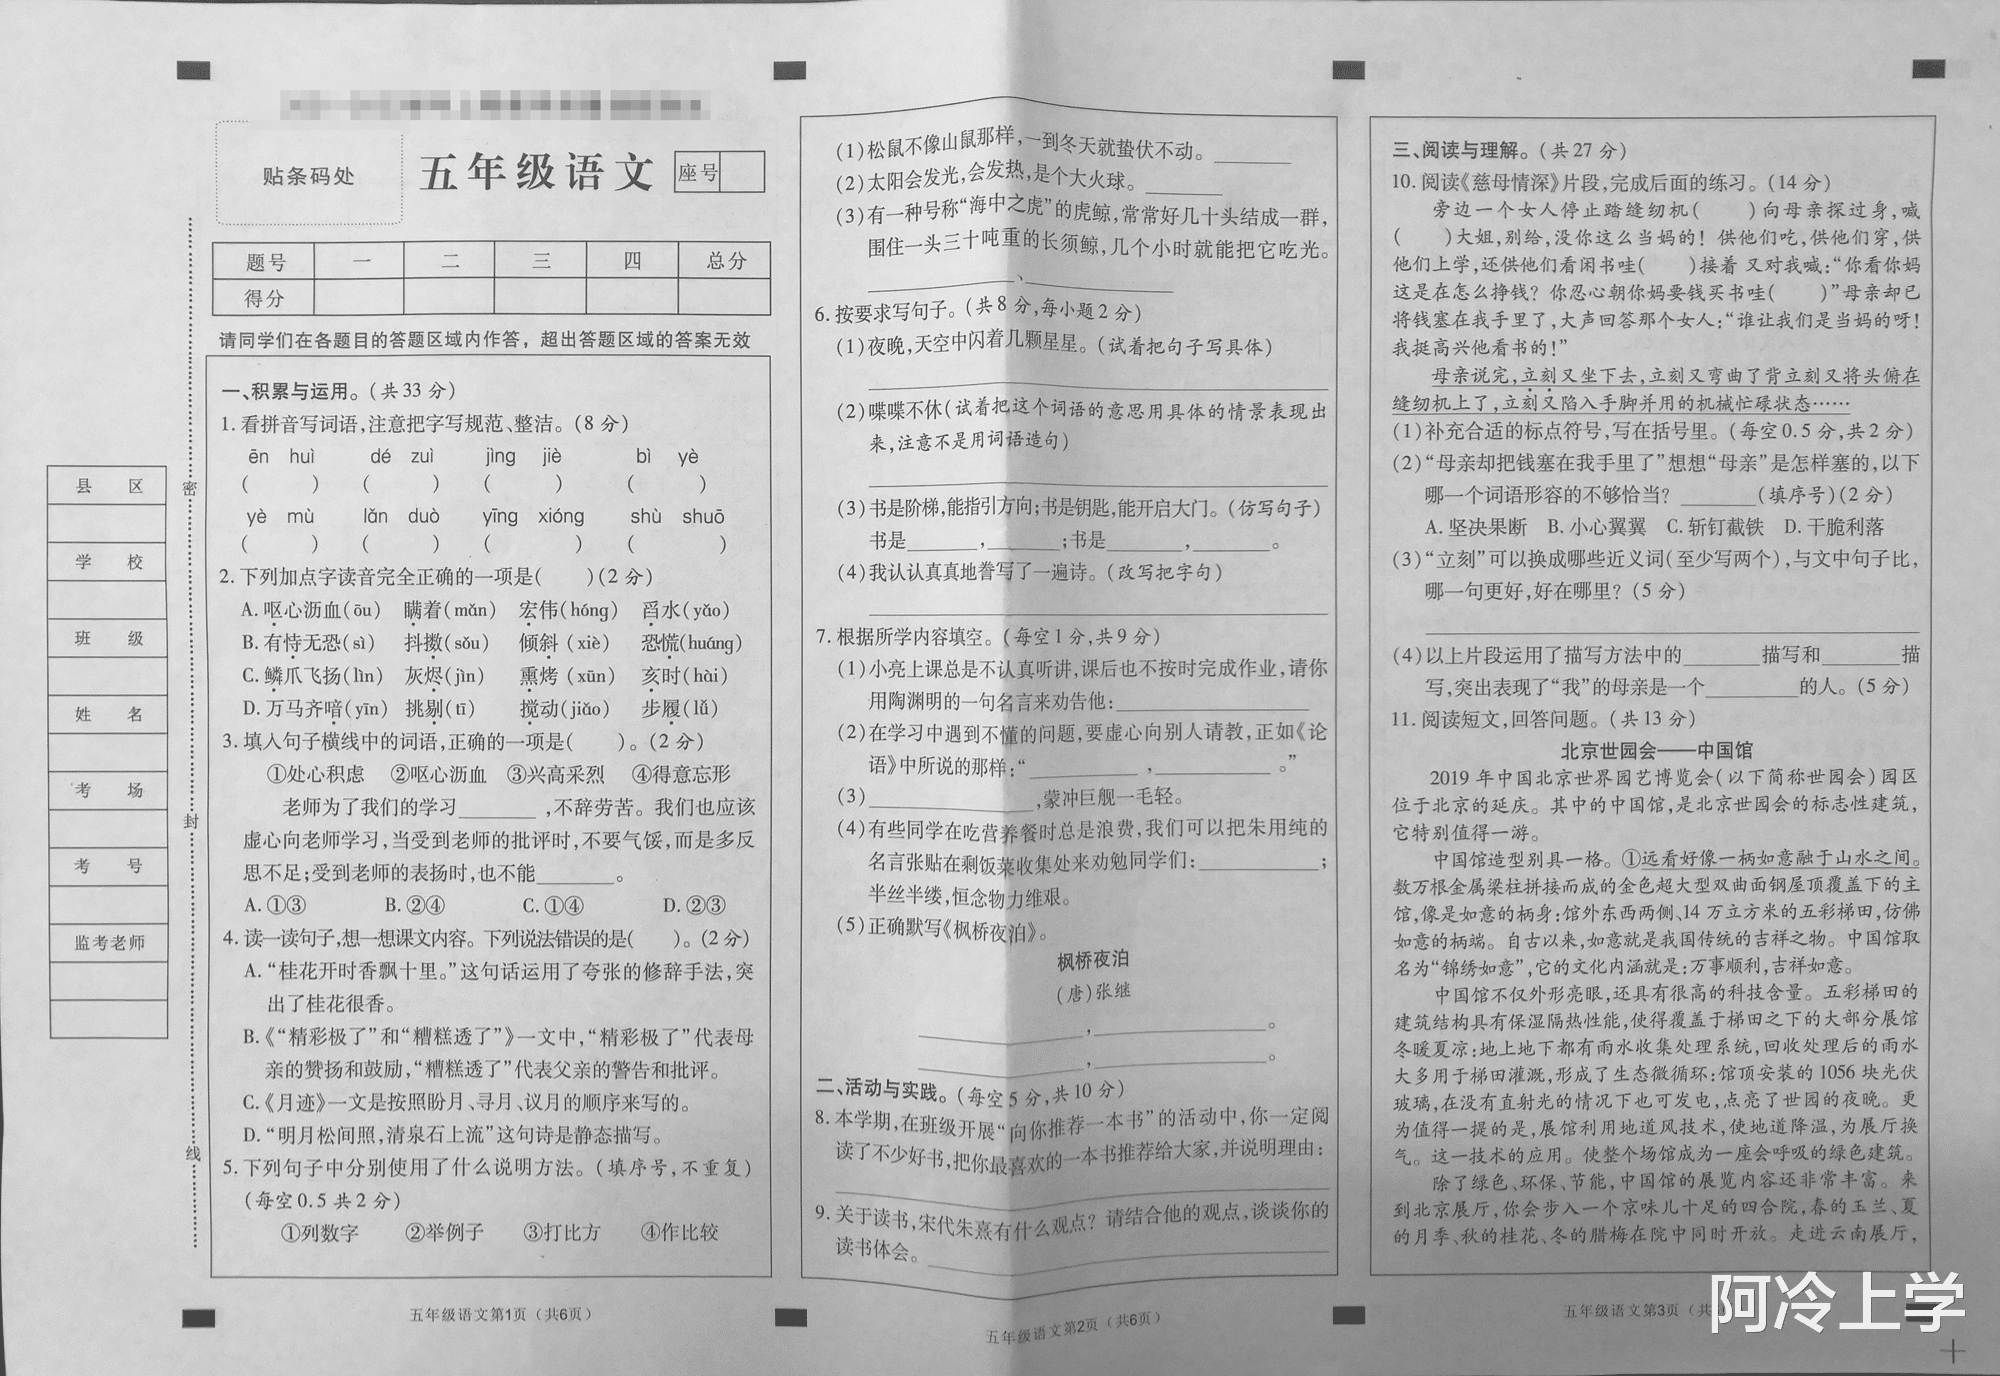 贴条码处
五年级语文
座号
题号 一 二 三 四 总分
得分
请同学们在各题目的答题区域内作答，超出答题区域的答案无效
县 区
学 校
班 级
姓 名
考 场
考 号
监考老师
密
封
线
一、积累与运用。(共33分)
1. 看拼音写词语,注意把字写规范、整洁。(8分)
ēn huì dé zuì jìng jiè bì yè
( ) ( ) ( ) ( )
yè mù lǎn duò yīng xióng shù shuō
( ) ( ) ( ) ( )
2. 下列加点字读音完全正确的一项是( )(2分)
A. 呕心沥血(ōu) 瞒着(mǎn) 宏伟(hóng) 舀水(yǎo)
B. 有恃无恐(sì) 抖擞(sǒu) 倾斜(xiè) 恐慌(huáng)
C. 鳞爪飞扬(lìn) 灰烬(jìn) 熏烤(xūn) 亥时(hài)
D. 万马齐喑(yīn) 挑剔(tī) 搅动(jiǎo) 步履(lǚ)
3. 填入句子横线中的词语,正确的一项是( )。(2分)
①处心积虑 ②呕心沥血 ③兴高采烈 ④得意忘形
老师为了我们的学习________,不辞劳苦。我们也应该
虚心向老师学习,当受到老师的批评时,不要气馁,而是多反
思不足;受到老师的表扬时,也不能________。
A. ①③ B. ②④ C. ①④ D. ②③
4. 读一读句子,想一想课文内容。下列说法错误的是( )。(2分)
A. “桂花开时香飘十里。”这句话运用了夸张的修辞手法,突
出了桂花很香。
B.《“精彩极了”和“糟糕透了”》一文中,“精彩极了”代表母
亲的赞扬和鼓励,“糟糕透了”代表父亲的警告和批评。
C.《月迹》一文是按照盼月、寻月、议月的顺序来写的。
D. “明月松间照,清泉石上流”这句诗是静态描写。
5. 下列句子中分别使用了什么说明方法。(填序号,不重复)
(每空0.5共2分)
①列数字 ②举例子 ③打比方 ④作比较
五年级语文第1页（共6页）
(1)松鼠不像山鼠那样,一到冬天就蛰伏不动。________
(2)太阳会发光,会发热,是个大火球。________
(3)有一种号称“海中之虎”的虎鲸,常常好几十头结成一群,
围住一头三十吨重的长须鲸,几个小时就能把它吃光。
________、________
6. 按要求写句子。(共8分,每小题2分)
(1)夜晚,天空中闪着几颗星星。(试着把句子写具体)
(2)喋喋不休(试着把这个词语的意思用具体的情景表现出
来,注意不是用词语造句)
(3)书是阶梯,能指引方向;书是钥匙,能开启大门。(仿写句子)
书是________,________;书是________,________。
(4)我认认真真地誊写了一遍诗。(改写把字句)
7. 根据所学内容填空。(每空1分,共9分)
(1)小亮上课总是不认真听讲,课后也不按时完成作业,请你
用陶渊明的一句名言来劝告他:________
(2)在学习中遇到不懂的问题,要虚心向别人请教,正如《论
语》中所说的那样:“________,________。”
(3)________,蒙冲巨舰一毛轻。
(4)有些同学在吃营养餐时总是浪费,我们可以把朱用纯的
名言张贴在剩饭菜收集处来劝勉同学们:________;
半丝半缕,恒念物力维艰。
(5)正确默写《枫桥夜泊》。
枫桥夜泊
(唐)张继
________,________。
________,________。
二、活动与实践。(每空5分,共10分)
8. 本学期,在班级开展“向你推荐一本书”的活动中,你一定阅
读了不少好书,把你最喜欢的一本书推荐给大家,并说明理由:
9. 关于读书,宋代朱熹有什么观点? 请结合他的观点,谈谈你的
读书体会。________
五年级语文第2页（共6页）
三、阅读与理解。(共27分)
10. 阅读《慈母情深》片段,完成后面的练习。(14分)
旁边一个女人停止踏缝纫机( )向母亲探过身,喊
( )大姐,别给,没你这么当妈的! 供他们吃,供他们穿,供
他们上学,还供他们看闲书哇( )接着 又对我喊:“你看你妈
这是在怎么挣钱? 你忍心朝你妈要钱买书哇( )”母亲却已
将钱塞在我手里了,大声回答那个女人:“谁让我们是当妈的呀!
我挺高兴他看书的!”
母亲说完,立刻又坐下去,立刻又弯曲了背立刻又将头俯在
缝纫机上了,立刻又陷入手脚并用的机械忙碌状态……
(1)补充合适的标点符号,写在括号里。(每空0.5分,共2分)
(2)“母亲却把钱塞在我手里了”想想“母亲”是怎样塞的,以下
哪一个词语形容的不够恰当? ________(填序号)(2分)
A. 坚决果断 B. 小心翼翼 C. 斩钉截铁 D. 干脆利落
(3)“立刻”可以换成哪些近义词(至少写两个),与文中句子比,
哪一句更好,好在哪里? (5分)
(4)以上片段运用了描写方法中的________描写和________描
写,突出表现了“我”的母亲是一个________的人。(5分)
11. 阅读短文,回答问题。(共13分)
北京世园会——中国馆
2019年中国北京世界园艺博览会(以下简称世园会)园区
位于北京的延庆。其中的中国馆,是北京世园会的标志性建筑,
它特别值得一游。
中国馆造型别具一格。①远看好像一柄如意融于山水之间。
数万根金属梁柱拼接而成的金色超大型双曲面钢屋顶覆盖下的主
馆,像是如意的柄身;馆外东西两侧、14万立方米的五彩梯田,仿佛
如意的柄端。自古以来,如意就是我国传统的吉祥之物。中国馆取
名为“锦绣如意”,它的文化内涵就是:万事顺利,吉祥如意。
中国馆不仅外形亮眼,还具有很高的科技含量。五彩梯田的
建筑结构具有保湿隔热性能,使得覆盖于梯田之下的大部分展馆
冬暖夏凉;地上地下都有雨水收集处理系统,回收处理后的雨水
大多用于梯田灌溉,形成了生态微循环;馆顶安装的1056块光伏
玻璃,在没有直射光的情况下也可发电,点亮了世园的夜晚。更
为值得一提的是,展馆利用地道风技术,使地道降温,为展厅换
气。这一技术的应用。使整个场馆成为一座会呼吸的绿色建筑。
除了绿色、环保、节能,中国馆的展览内容还非常丰富。来
到北京展厅,你会步入一个京味儿十足的四合院,春的玉兰、夏
的月季、秋的桂花、冬的腊梅在院中同时开放。走进云南展厅,
五年级语文第3页（共
阿冷上学